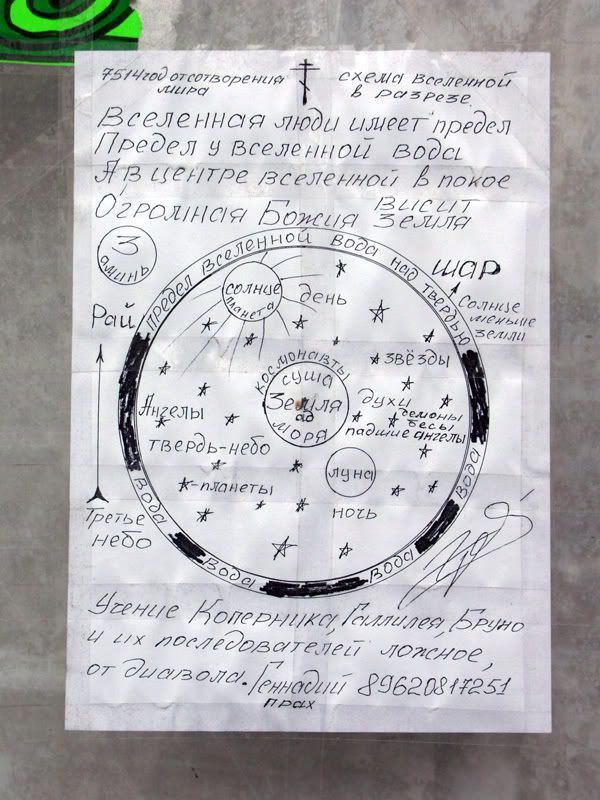 7514 год от сотворения
мира
схема вселенной
в разрезе.
Вселенная люди имеет предел
Предел у вселенной вода
А в центре вселенной в покое
Огромная Божия висит
Земля
З
аминь
Предел вселенной вода над твердью
шар
Солнце
меньше
земли
Рай
солнце
планета
день
звёзды
космонавты
суша
Земля
ад
моря
Ангелы
духи
демоны
бесы
падшие ангелы
твердь-небо
луна
планеты
ночь
Третье
небо
вода
вода
вода
вода
Учение Коперника, Галлилея, Бруно
и их последователей ложное,
от диавола. Геннадий 89620817251
прах